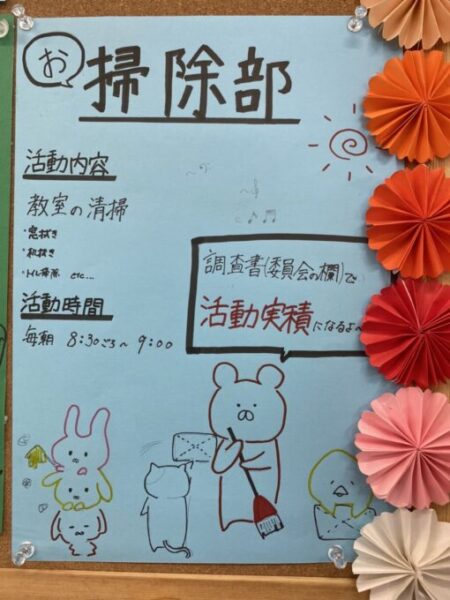 お掃除部
活動内容
教室の清掃
・窓拭き
・机拭き
・トイレ掃除 etc...
活動時間
毎朝 8:30ごろ〜9:00
調査書(委員会の欄)で
活動実積になるよ〜